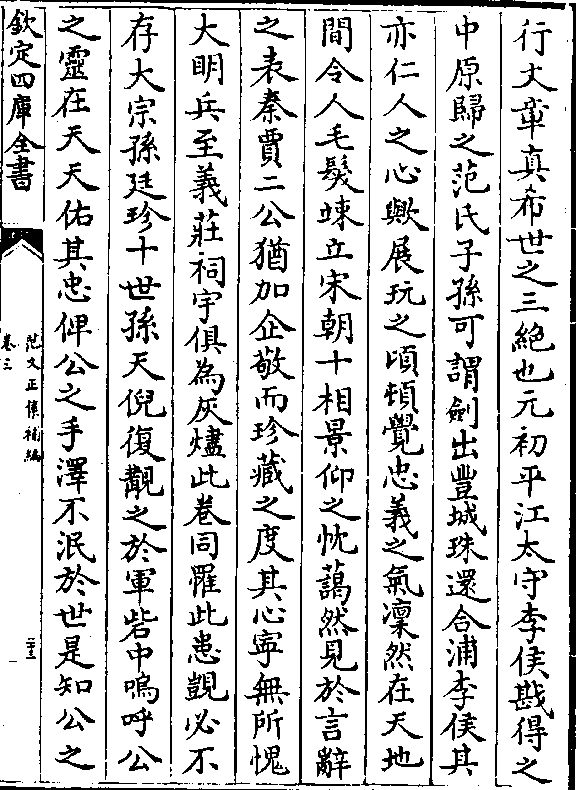 行丈章真布世之三絕也元初平江太守李侯戡得之
中原歸之范氏子孫可謂劍出豐城珠還合浦李侯其
亦仁人之心歟展玩之頃頓覺忠義之氣凜然在天地
間令人毛髮竦立宋朝十相景仰之忱藹然見於言辭
之表秦賈二公猶加企敬而珍藏之度其心寧無所愧
大明兵至義莊祠宇俱為灰燼此卷同罹此患覬必不
存大宗孫廷珍十世孫天倪復覩之於軍砦中嗚呼公
之靈在天天佑其忠俾公之手澤不泯於世是知公之
欽定四庫全書
范文正集補編
卷三
二十三